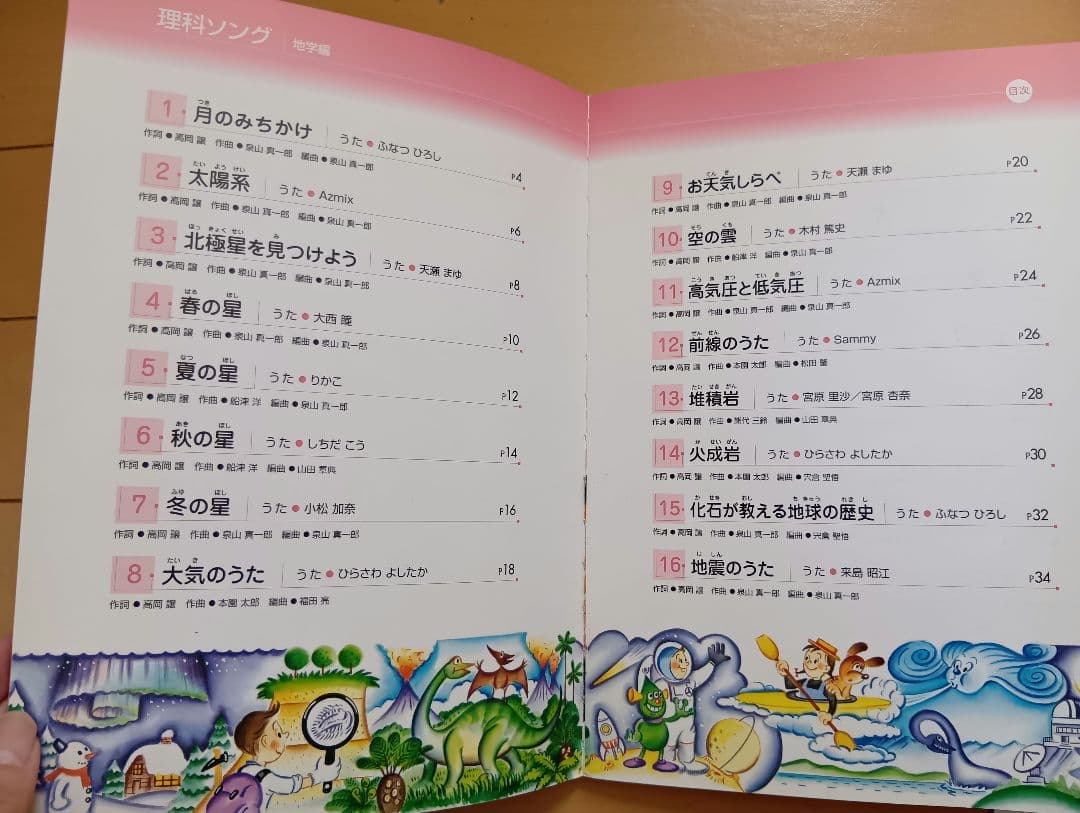 理科ソング 地学編
1 月のみちかけ うた●ふなつ ひろし
作詞●高岡 譲 作曲●泉山 真一郎 編曲●泉山 真一郎
P4
2 太陽系 うた●Azmix
作詞●高岡 譲 作曲●泉山 真一郎 編曲●泉山 真一郎
P6
3 北極星を見つけよう うた●天瀬 まゆ
作詞●高岡 譲 作曲●泉山 真一郎 編曲●泉山 真一郎
P8
4 春の星 うた●大西 睦
作詞●高岡 譲 作曲●泉山 真一郎 編曲●泉山 真一郎
P10
5 夏の星 うた●りかこ
作詞●高岡 譲 作曲●船津 洋 編曲●泉山 真一郎
P12
6 秋の星 うた●しちだ こう
作詞●高岡 譲 作曲●船津 洋 編曲●山田 章典
P14
7 冬の星 うた●小松 加奈
作詞●高岡 譲 作曲●泉山 真一郎 編曲●泉山 真一郎
P16
8 大気のうた うた●ひらさわ よしたか
作詞●高岡 譲 作曲●本園 太郎 編曲●福田 亮
P18
目次
9 お天気しらべ うた●天瀬 まゆ
作詞●高岡 譲 作曲●泉山 真一郎 編曲●泉山 真一郎
P20
10 空の雲 うた●木村 篤史
作詞●高岡 譲 作曲●船津 洋 編曲●泉山 真一郎
P22
11 高気圧と低気圧 うた●Azmix
作詞●高岡 譲 作曲●泉山 真一郎 編曲●泉山 真一郎
P24
12 前線のうた うた●Sammy
作詞●高岡 譲 作曲●本園 太郎 編曲●松田
P26
13 堆積岩 うた●宮原 里沙／宮原 杏奈
作詞●高岡 譲 作曲●熊代 三鈴 編曲●山田 章典
P28
14 火成岩 うた●ひらさわ よしたか
作詞●高岡 譲 作曲●本園 太郎 編曲●宍倉 聖悟
P30
15 化石が教える地球の歴史 うた●ふなつ ひろし
作詞●高岡 譲 作曲●泉山 真一郎 編曲●宍倉 聖悟
P32
16 地震のうた うた●来島 昭江
作詞●高岡 譲 作曲●泉山 真一郎 編曲●泉山 真一郎
P34